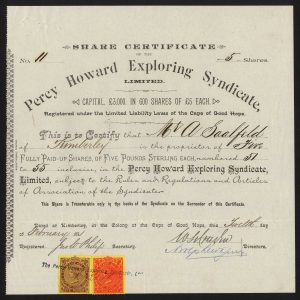 SHARE CERTIFICATE
OF THE
No. 11
5 Shares.
Percy Howard Exploring Syndicate,
LIMITED.
CAPITAL £3,000, IN 600 SHARES OF £5 EACH.
Registered under the Limited Liability Laws of the Cape of Good Hope.
This is to Certify that Mr A Saalfeld
of Kimberley is the proprietor of Five
FULLY PAID-UP SHARES, OF FIVE POUNDS STERLING EACH, numbered 51
to 55 inclusive, in the Percy Howard Exploring Syndicate,
Limited, subject to the Rules and Regulations and Articles
of Association of the Syndicate.
This Share is Transferable only in the books of the Syndicate on the Surrender of this Certificate.
Dated at Kimberley, in the Colony of the Cape of Good Hope, this
Registered, Secretary.
The Percy